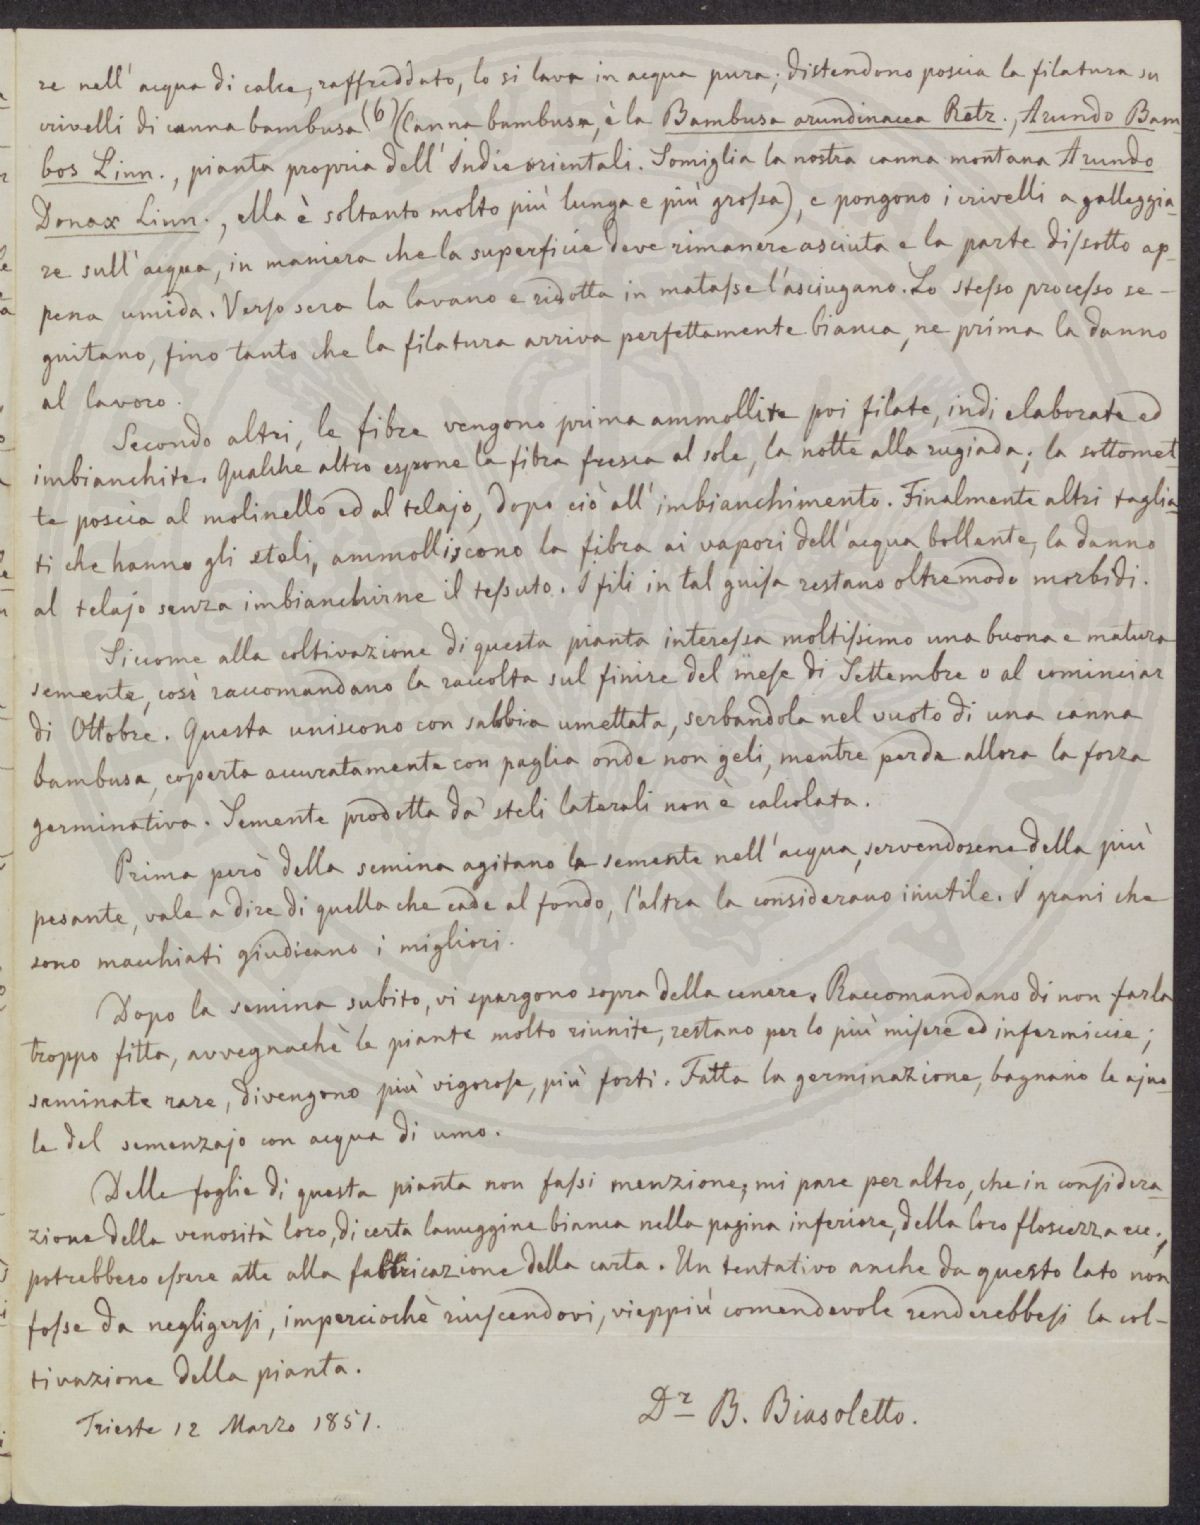 re nell' acqua di calce, raffreddato, lo si lava in acqua pura; distendono poscia la filatura su
crivelli di canna bambusa (6) (Canna bambusa, è la Bambusa arundinacea Retz., Arundo Bam
bos Linn., pianta propria dell' Indie orientali. Somiglia la nostra canna montana Arundo
Donax Linn., ella è soltanto molto più lunga e più grossa), e pongono i crivelli a galleggia-
re sull' acqua, in maniera che la superficie deve rimanere asciuta e la parte dissotto ap-
pena umida. Verso sera la lavano e ridotta in matasse l'asciugano. Lo stesso processo se-
guitano, fino tanto che la filatura arriva perfettamente bianca, ne prima la danno
al lavoro.
Secondo altri, le fibre vengono prima ammollite poi filate, indi elaborate ed
imbianchite. Qualche altro espone la fibra fresca al sole, la notte alla rugiada; la sottomet-
te poscia al molinello ed al telajo, dopo ciò all' imbianchimento. Finalmente altri taglia-
ti che hanno gli steli, ammolliscono la fibra ai vapori dell'acqua bollente, la danno
al telajo senza imbianchirne il tessuto. I fili in tal guisa restano oltremodo morbidi.
Siccome alla coltivazione di questa pianta interessa moltissimo una buona e matura
semente, così raccomandano la raccolta sul finire del mese di Settembre o al cominciar
di Ottobre. Questa uniscono con sabbia umettata, serbandola nel vuoto di una canna
bambusa, coperta accuratamente con paglia onde non geli, mentre perde allora la forza
germinativa. Semente prodotta da steli laterali non è calcolata.
Prima però della semina agitano la semente nell'acqua, servendosene della più
pesante, vale a dire di quella che cade al fondo, l'altra la considerano inutile. I grani che
sono macchiati giudicano i migliori.
Dopo la semina subito, vi spargono sopra della cenere. Raccomandano di non farla
troppo fitta, avvegnachè le piante molto riunite, restano per lo più misere ed infermicie;
seminate rare, divengono più vigorose, più forti. Fatta la germinazione, bagnano le ajuo-
le del semenzajo con acqua di umo.
Delle foglie di questa pianta non fassi menzione; mi pare per altro, che in considera-
zione della venosità loro, di certa lanuggine bianca nella pagina inferiore, della loro floscezza ecc.,
potrebbero essere atte alla fabbricazione della carta. Un tentativo anche da questo lato non
fosse da negligersi, imperciochè riuscendovi, vieppiù comendevole renderebbesi la col-
tivazione della pianta.
Trieste 12 Marzo 1851.
Dr B. Biasoletto.